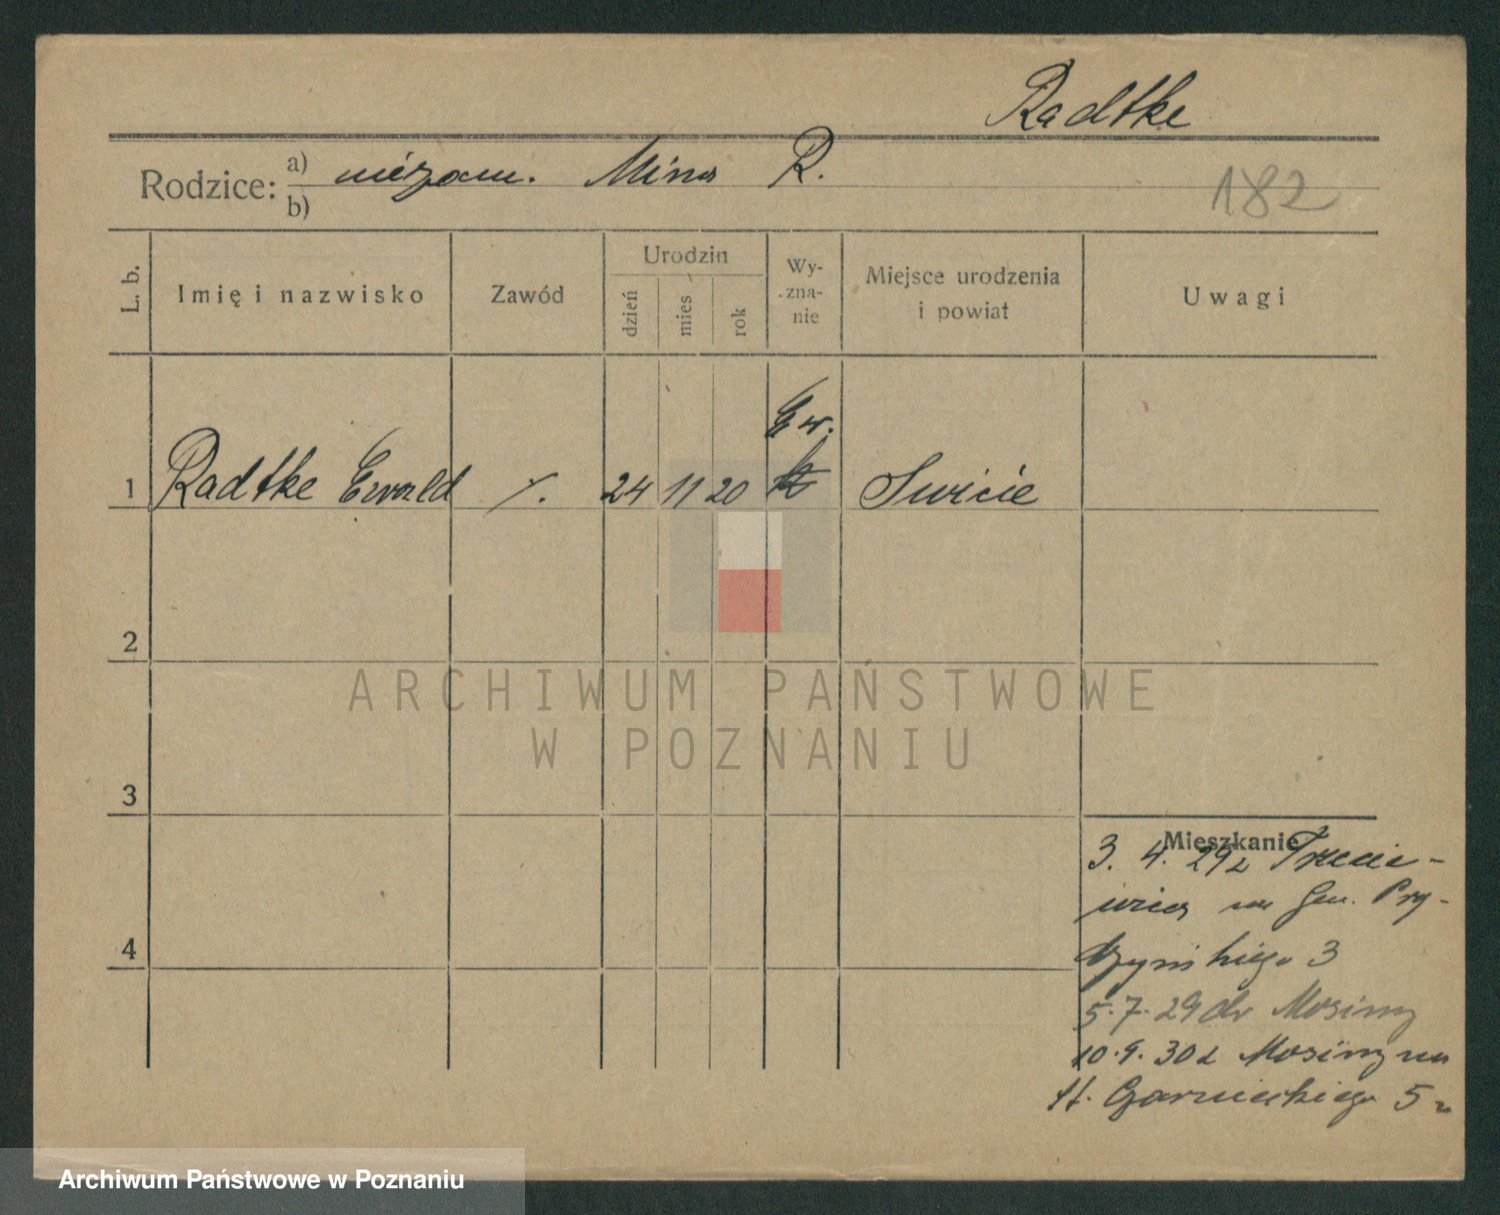 Radtke
Rodzice: a) niezam. Mina R.
b)
182
L. b.
Imię i nazwisko
Zawód
Urodzin
dzień
mies.
rok
Wy-
zna-
nie
Miejsce urodzenia
i powiat
Uwagi
Ew.
1 Radtke Ewald /. 24 11 20 Świcie
2
3
4
ARCHIWUM PAŃSTWOWE
W POZNANIU
Mieszkanie
3. 4. 29 z Trzcie-
wica na Gen. Prą-
dzyńskiego 3
5.7.29 do Mosiny
10.9.30 z Mosiny na
St. Czarnieckiego 5
Archiwum Państwowe w Poznaniu